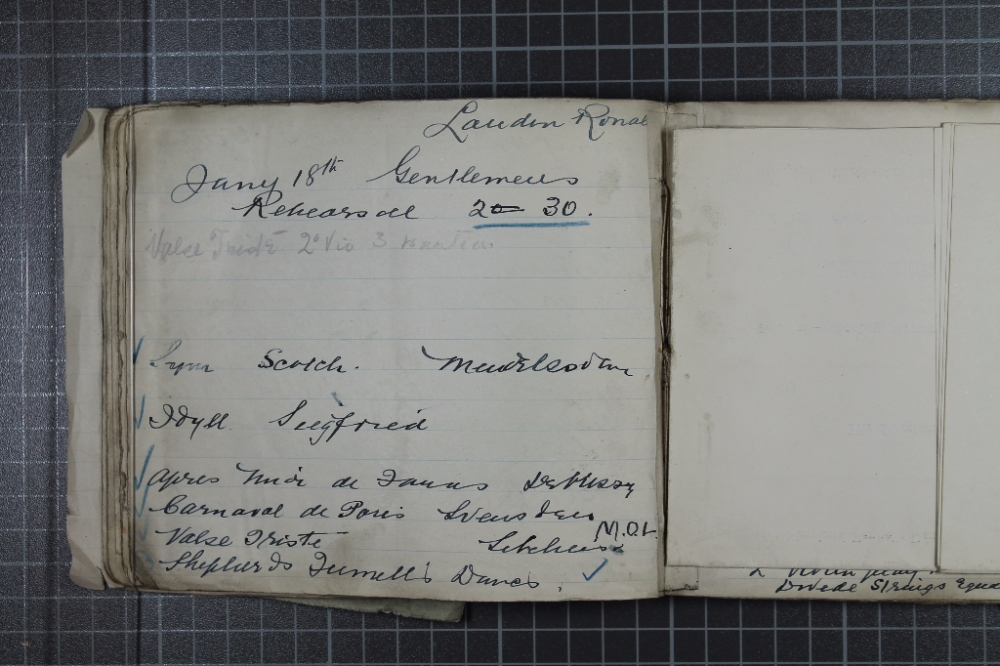 Landon Ronal
Jany 18th Gentlemens
Rehearsal 2 30.
Valse Triste 2º Vio 3
Sym Scotch. Mendelssohn
Idyll. Siegfried
Apres Midi de Faunes Debussy
Carnaval de Paris Svensden
M.O.L.
Valse Triste Sibelius
Shepherds Fennel's Dance.
Divide Strings Equa